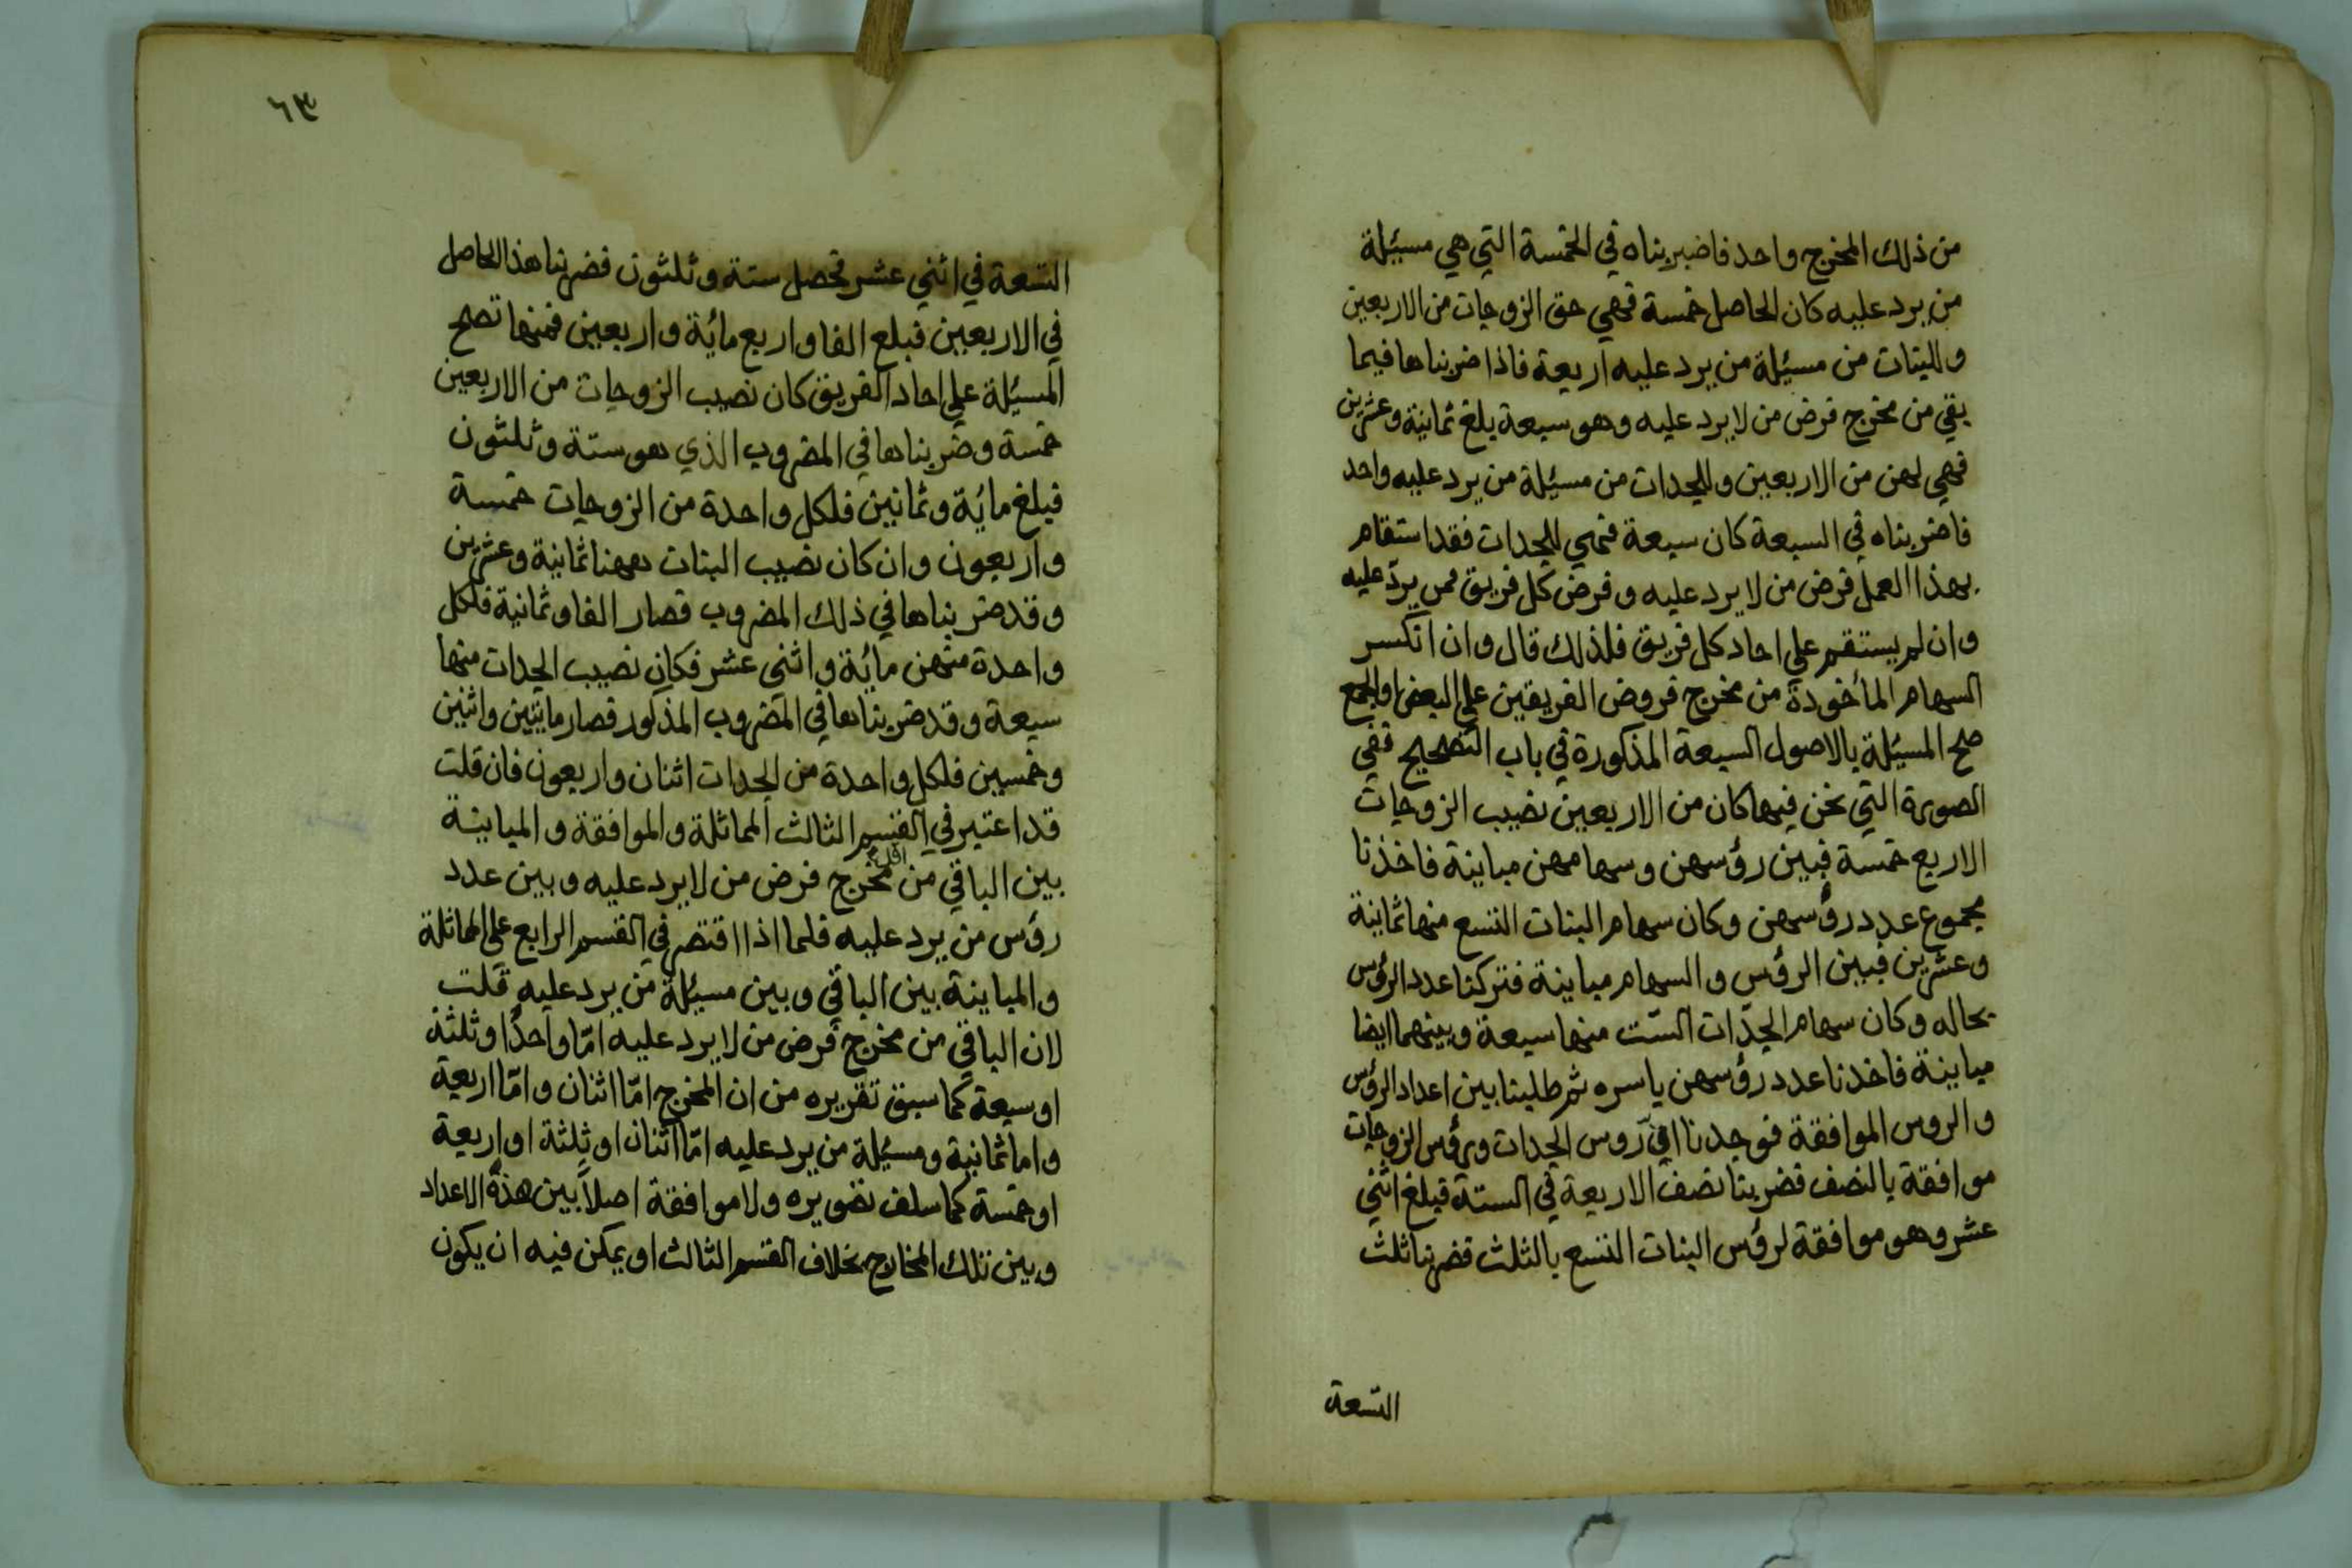 من ذلك المخرج واحد فاضربناه في الخمسة التي هي مسئلة
من يرد عليه كان الحاصل خمسة فهي حق الزوجات من الاربعين
وللبنات من مسئلة من يرد عليه اربعة فاذا ضربناها فيما
بقي من مخرج فرض من لا يرد عليه وهو سبعة يلغ ثمانية وعشرين
فهي لهن من الاربعين وللجدات من مسئلة من يرد عليه واحد
فاضربناه في السبعة كان سبعة فهي للجدات فقد استقام
بهذا العمل فرض من لا يرد عليه وفرض كل فريق ممن يردّ عليه
وان لم يستقم علي احاد كل فريق فلذلك قال وان انكسر
السهام المأخوذة من مخرج فروض الفريقين علي البعض او الجمع
صح المسئلة بالاصول السبعة المذكورة في باب التصحيح ففي
الصورة التي نحن فيها كان من الاربعين نصيب الزوجات
الاربع خمسة فبين رؤسهن وسهامهن مباينة فاخذنا
مجموع عدد رؤسهن وكان سهام البنات التسع منها ثمانية
وعشرين فبين الرؤس والسهام مباينة فتركنا عدد الرؤس
بحاله وكان سهام الجدّات السّت منها سبعة وبينهما ايضا
مباينة فاخذنا عدد رؤسهن باسره ثم طلبنا بين اعداد الرؤس
والروس الموافقة فوجدنا في روس الجدات ورؤس الزوجات
موافقة بالنصف فضربنا نصف الاربعة في الستة فبلغ اثني
عشر وهو موافقة لرؤس البنات التسع بالثلث فضربنا ثلث
التسعة
٦٣
التسعة في اثني عشر فحصل ستة وثلثون فضربنا هذا الحاصل
في الاربعين فبلع الفا واربع مائة واربعين فمنها تصح
المسئلة علي احاد الفريق كان نصيب الزوجات من الاربعين
خمسة وضربناها في المضروب الذي هو ستة وثلثون
فبلغ مائة وثمانين فلكل واحدة من الزوجات خمسة
واربعون وان كان نصيب البنات ههنا ثمانية وعشرين
وقد ضربناها في ذلك المضروب فصار الفا وثمانية فلكل
واحدة منهن مائة واثني عشر فكان نصيب الجدات منها
سبعة وقد ضربناها في المضروب المذكور فصار مايتين واثنين
وخمسين فلكل واحدة من الجدات اثنان واربعون فان قلت
قد اعتبر في القسم الثالث المماثلة والموافقة والمباينة
بين الباقي من اقل مخرج فرض من لا يرد عليه وبين عدد
رؤس من يرد عليه فلما اذا اقتصر في القسم الرابع علي المماثلة
والمباينة بين الباقي وبين مسئلة من يرد عليه قلت
لان الباقي من مخرج فرض من لا يرد عليه امّا واحدًا وثلثة
او سبعة كما سبق تقريره من ان المخرج امّا اثنان وامّا اربعة
واما ثمانية ومسئلة من يرد عليه امّا اثنان او ثلثة او اربعة
او خمسة كما سلف تصويره ولا موافقة اصلاً بين هذه الاعداد
وبين تلك المخارج بخلاف القسم الثالث او يمكن فيه ان يكون